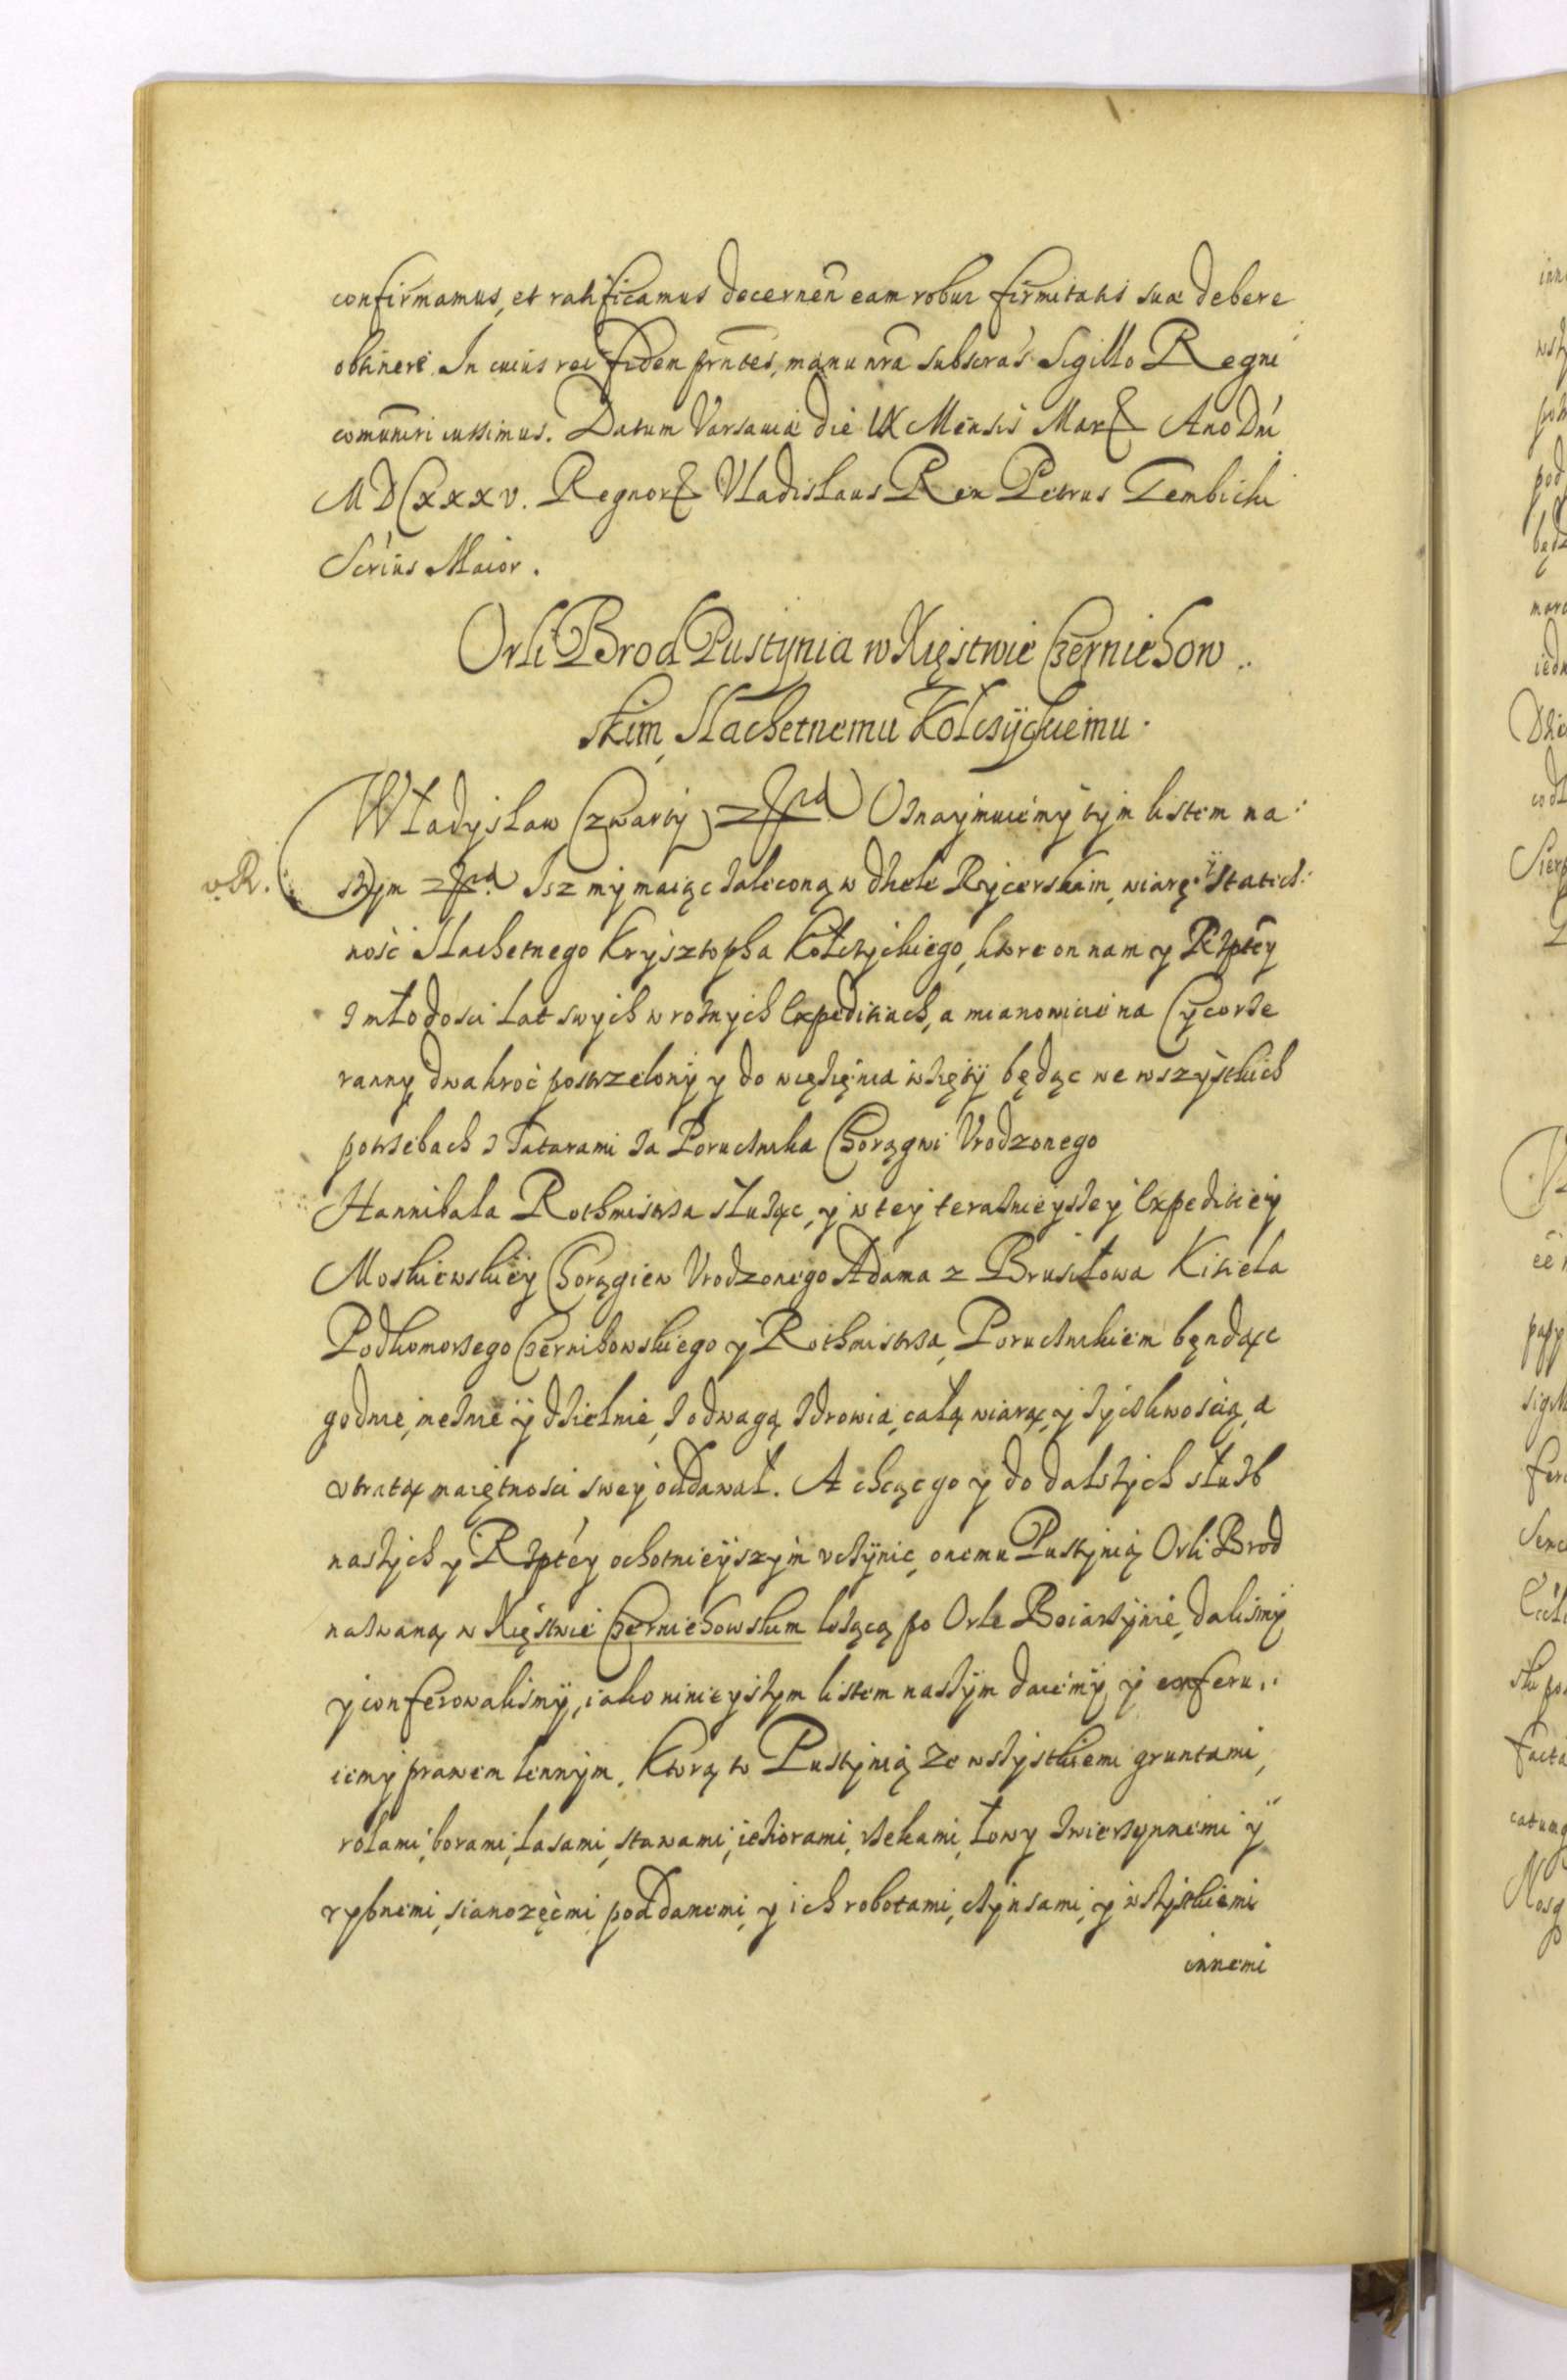 confirmamus, et ratificamus decernen eam robur firmitatis suæ debere
obtinere. In cuius rei fidem prntes, manu nra subscras Sigillo Regni
comuniri iussimus. Datum Varsauiæ die IX Mensis Mar Ano Dni
MDCXXXV. Regnor Vladislaus Rex Petrus Gembicki
Scrius Maior.
Orli Brod Pustynia w Xięstwie Czerniehow
skim, Slachetnemu Kolczyckiemu.
Władysław Czwarty Oznaymuiemy tym listem na
v.R. szym Isz my maiąc zaleconą w dziele Rycerskim, wiarę y statecz
ność Slachetnego Krysztopha Kołczyckiego, ktore on nam y Rzptey
z młodosci lat swych w rożnych Expeditiach, a mianowicie na Cycorze
ranny, dwa kroć postrzelony y do więzięnia wzięty będąc we wszystkich
potrzebach z Tatarami za Porucznika Chorągwi Vrodzonego
Hannibala Rothmistrza służąc, y w tey teraznieyszey Expeditiey
Moskiewskiey Chorągiew Vrodzonego Adama z Brusiłowa Kisiela
Podkomorzego Czernihowskiego y Rothmistrza, Porucznikiem będąc
godnie, mężnie y dzielnie, z odwagą zdrowia, całą wiarą, y życzliwością, a
vtratą maiętnosci swey oddawał. A chcąc go y do dalszych służb
naszych y Rzptey ochotnieyszym vczynic, onemu Pustynią Orli Brod
nazwaną w Xięstwie Czerniehowskim leżącą po Orle Boiarzynie, dalismy
y conferowalismy, iako ninieyszym listem naszym daiemy y conferu
iemy prawem lennym. Ktorą to Pustynią ze wszystkiemi gruntami,
rolami, borami, lasami, stawami, ieziorami, rzekami, łowy zwierzynnemi y
rybnemi, sianozęćmi, poddanemi, y ich robotami, czynsami, y wszystkiemi
innemi